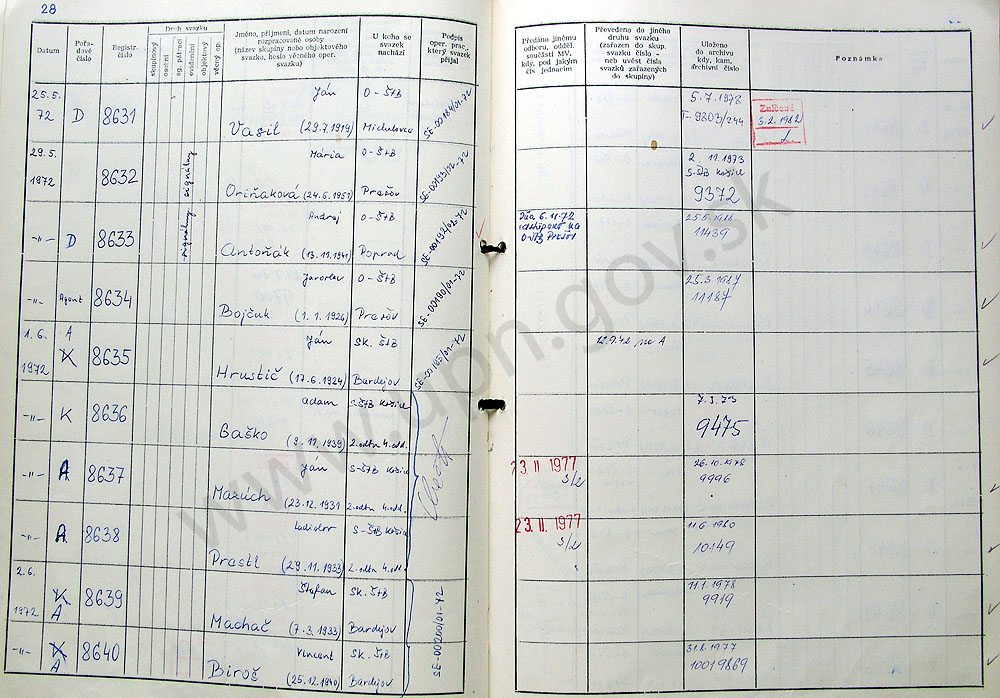 28
Datum
Pořadové číslo
Registr. číslo
Druh svazku
skupinový
osobní
ag. pátrací
evidenční
objektový
věcný op.
Jméno, příjmení, datum narození
rozpracované osoby
(název skupiny nebo objektového
svazku, heslo věcného oper.
svazku)
U koho se
svazek
nachází
Podpis
oper. prac.,
který svazek
přijal
Předáno jinému
odboru, odděl.
součásti MV,
kdy, pod jakým
čís. jednacím
Převedeno do jiného
druhu svazku
(zařazen do skup.
svazku číslo -
neb uvést čísla
svazků zařazených
do skupiny)
Uloženo
do archivu
kdy, kam,
archivní číslo
Poznámka
25.5. Ján O-ŠtB 5.7.1978
72 D 8631 Vasil (29.7.1919) Michalovce SE-00184/01-72 I-9803/244
Zničené
3.2.1982
29.5. signálny Mária O-ŠtB 2. 11. 1973
1972 8632 Oriňaková (24.6.1951) Prešov SE-00193/01-72 S-ŠtB Košice
9372
signálny Andrej O-ŠtB Dňa 6.11.72 25.5.1988
-"- D 8633 Antoňák (13.11.1941) Poprad SE-00192/01-72 odstúpené na 11439
O-ŠtB Prešov
Jaroslav O-ŠtB 25.3.1987
-"- Agent 8634 Bojčuk (1.1.1924) Prešov SE-00190/01-72 11187
1.6. A Ján Sk. ŠtB
1972 K 8635 Hrustič (17.6.1924) Bardejov SE-00185/01-72 12.9.72 na A
Adam S-ŠtB Košice 7.3.73
-"- K 8636 Gaško (9.11.1939) 2.odbor 4.odd. 9475
Ján S-ŠtB Košice 23 II 1977 26.10.1978
-"- A 8637 Mazúch (23.12.1931 2.odbor 4.odd. S/2 9996
Ladislav S-ŠtB Košice 23. II. 1977 11.6.1980
-"- A 8638 Prastl (29.11.1933) 2.odbor 4.odd. S/2 10149
2.6. K Štefan Sk. ŠtB 11.1.1978
1972 A 8639 Machač (7.3.1933) Bardejov SE-00200/01-72 9919
K Vincent Sk. ŠtB 31.8.1977
-"- A 8640 Biroš (25.12.1940) Bardejov 10019869
www.upn.gov.sk